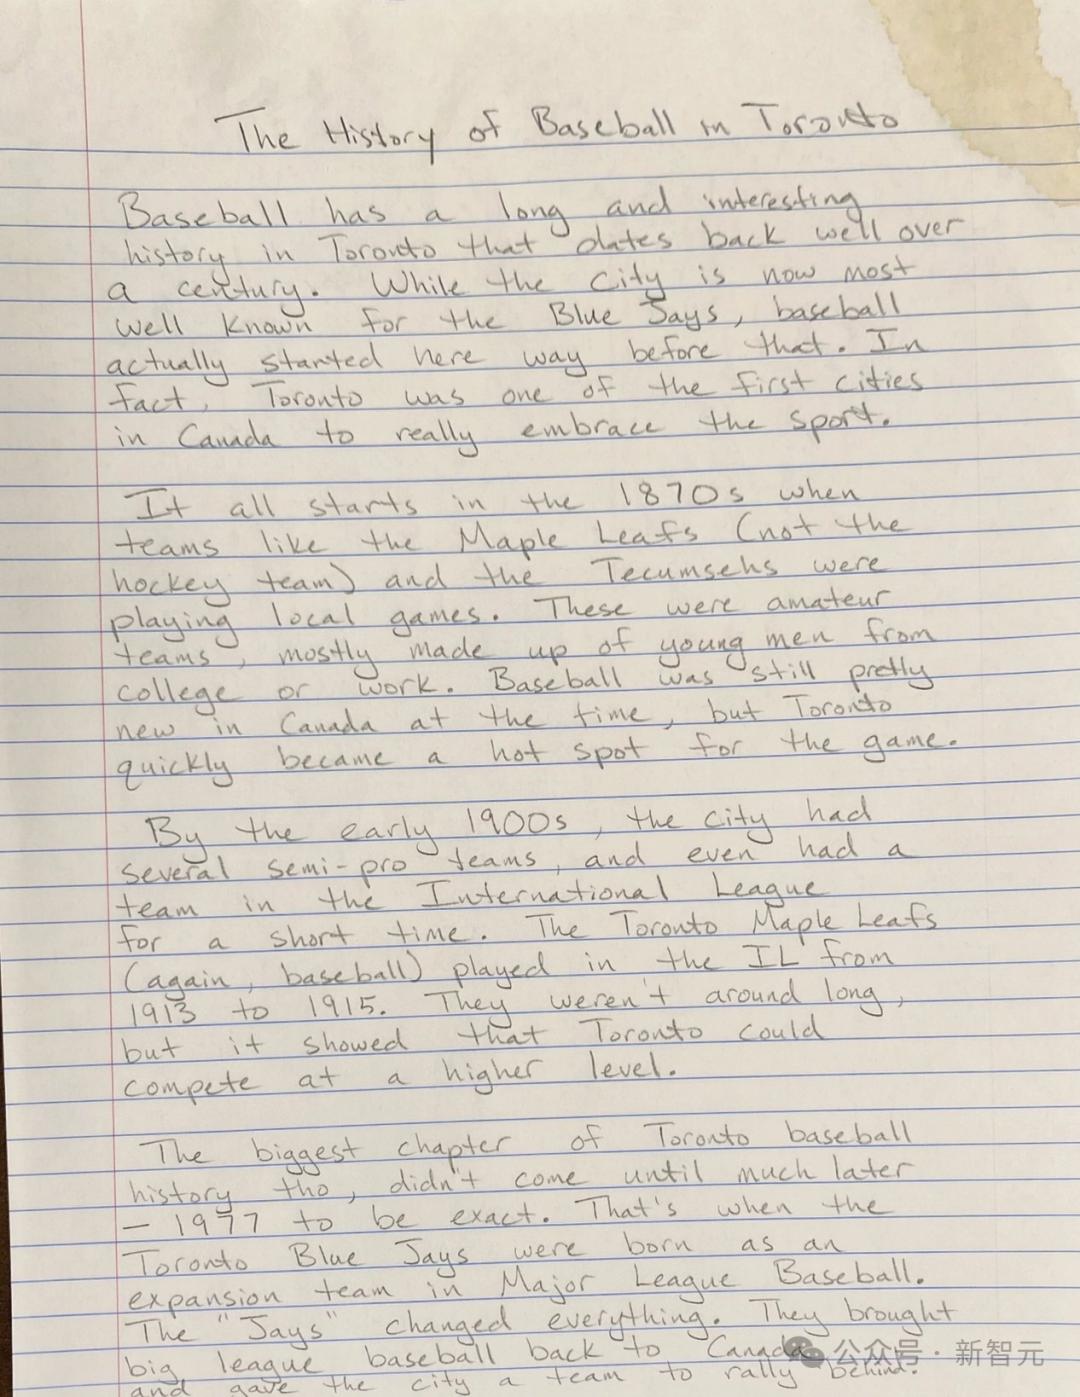 The History of Baseball in Toronto
Baseball has a long and interesting
history in Toronto that dates back well over
a century. While the city is now most
well known for the Blue Jays, baseball
actually started here way before that. In
fact, Toronto was one of the first cities
in Canada to really embrace the sport.
It all starts in the 1870s when
teams like the Maple Leafs (not the
hockey team) and the Tecumsehs were
playing local games. These were amateur
teams, mostly made up of young men from
college or work. Baseball was still pretty
new in Canada at the time, but Toronto
quickly became a hot spot for the game.
By the early 1900s, the city had
several semi-pro teams, and even had a
team in the International League
for a short time. The Toronto Maple Leafs
(again, baseball) played in the IL from
1913 to 1915. They weren't around long,
but it showed that Toronto could
compete at a higher level.
The biggest chapter of Toronto baseball
history tho, didn't come until much later
— 1977 to be exact. That's when the
Toronto Blue Jays were born as an
expansion team in Major League Baseball.
The "Jays" changed everything. They brought
big league baseball back to Canada
and gave the city a team to rally behind.
公众号·新智元